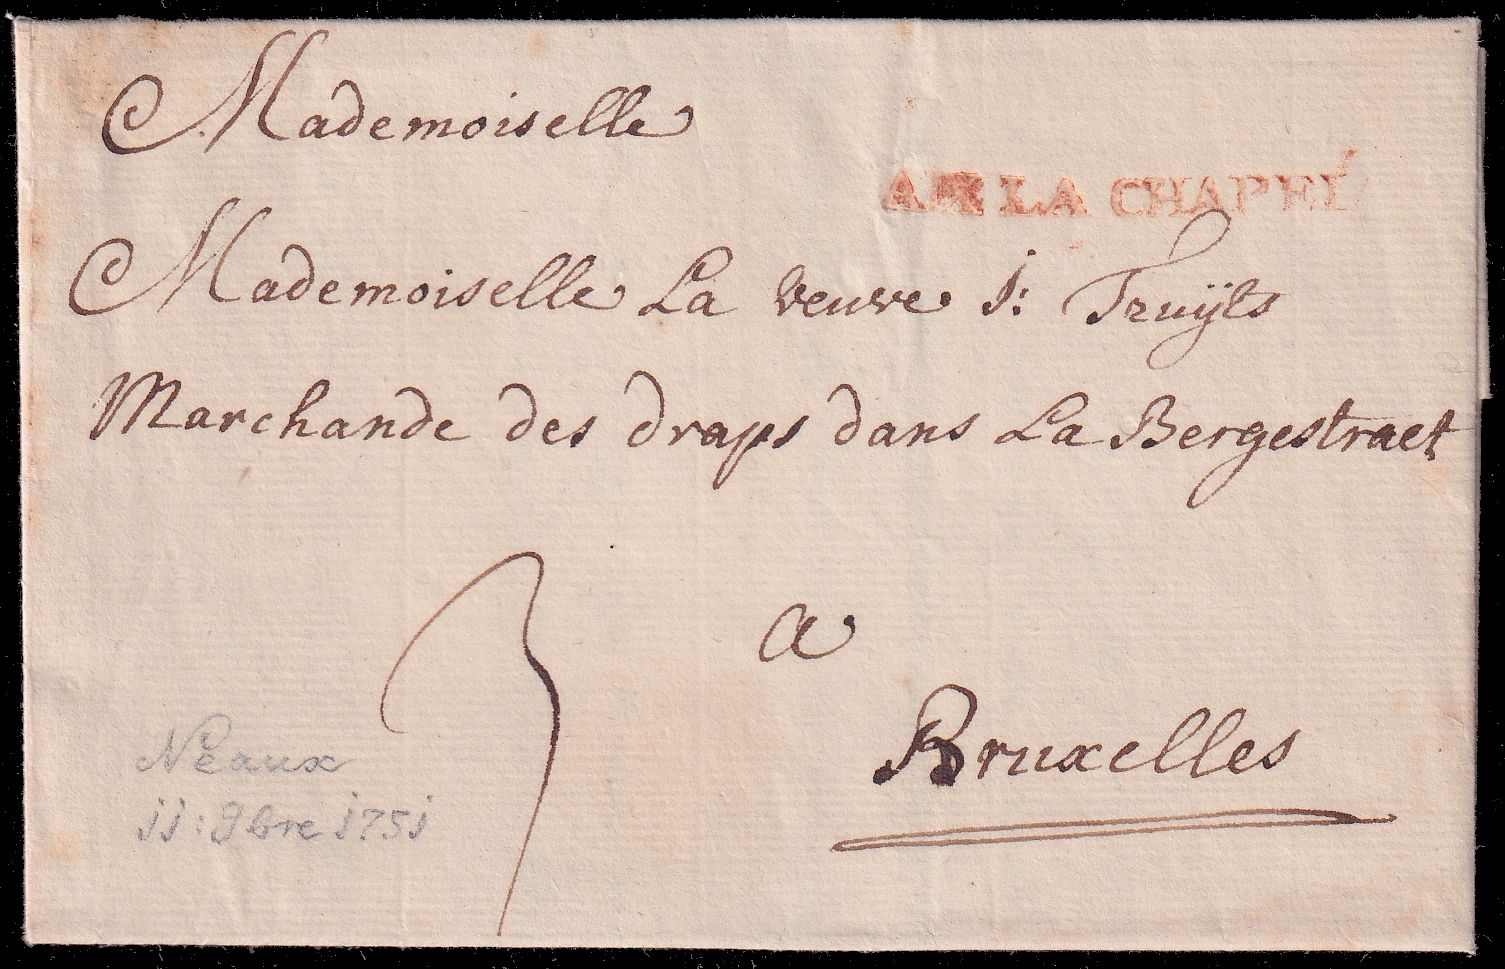 Mademoiselle
AIX LA CHAPEL
Mademoiselle La veuve J: Truÿts
Marchande des draps dans La Bergestraet
3
a
Bruxelles
Néaux
jj: 9bre j75j